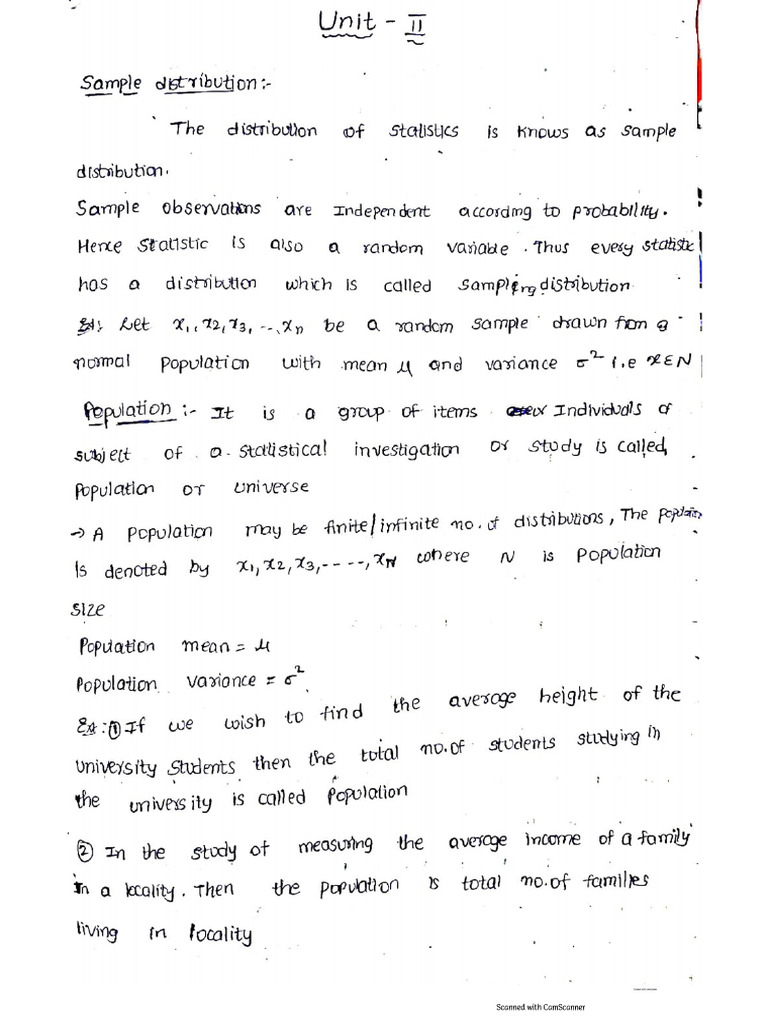 Unit - II
Sample distribution :-
The distribution of statistics is knows as sample
distribution.
Sample observations are Independent according to probability.
Hence statistic is also a random variable. Thus every statistic
has a distribution which is called sampling distribution
Ex: Let x1, x2, x3, --, xn be a random sample drawn from a
normal population with mean μ and variance σ² i.e x∈N
Population :- It is a group of items or Individuals of
subject of a statistical investigation or study is called
population or universe
→ A population may be finite/infinite no. of distributions, The population
is denoted by x1, x2, x3, ----, xN where N is population
size
Population mean = μ
Population variance = σ²
Ex: ① If we wish to find the average height of the
university students then the total no. of students studying in
the university is called population
② In the study of measuring the average income of a family
in a locality. Then the population is total no. of families
living in locality
Scanned with CamScanner